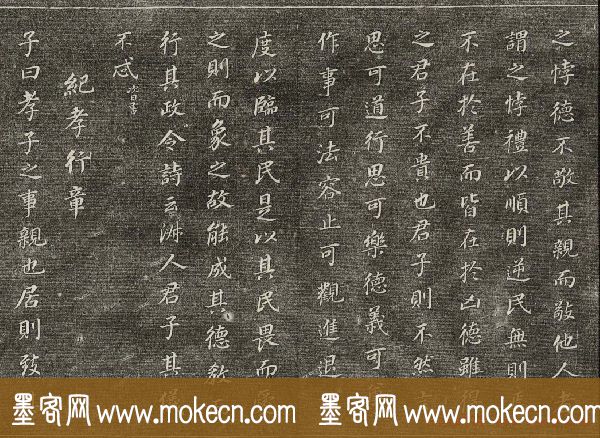 之悖德不敬其親而敬他人者
謂之悖禮以順則逆民無則
不在於善而皆在於凶德雖得
之君子不貴也君子則不然言
思可道行思可樂德義可尊
作事可法容止可觀進退
度以臨其民是以其民畏而愛
之則而象之故能成其德教而
行其政令詩云淑人君子其儀
不忒
紀孝行章
子曰孝子之事親也居則致
墨客网 www.mokecn.com 墨客网 www.mokecn.com